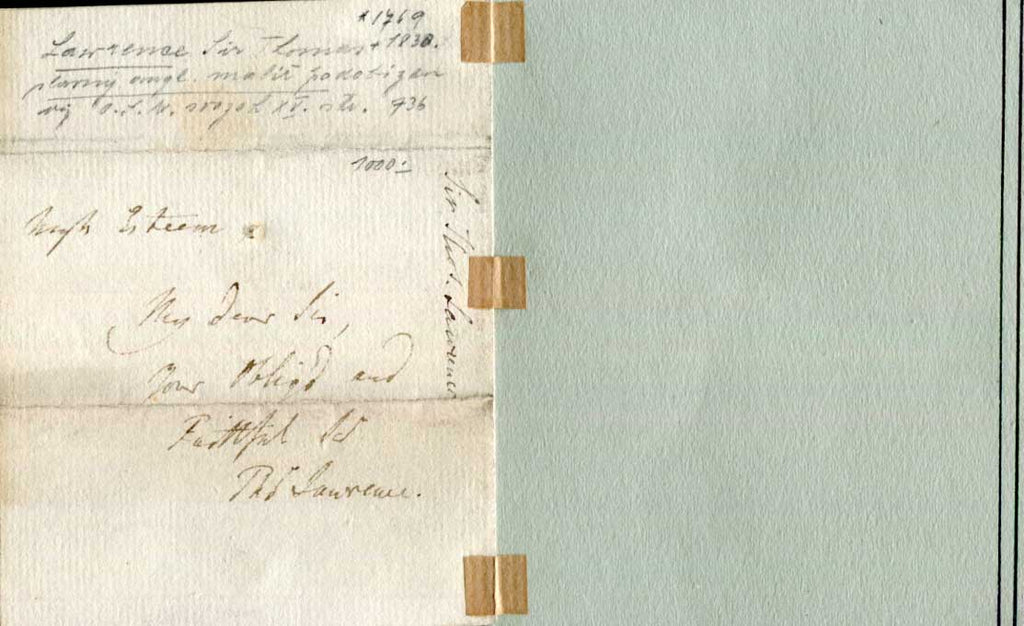 * 1769
Lawrence Sir Thomas + 1830.
slavný angl. malíř podobizen
viz O.S.N. svazek XV. str. 736
1000.-
Sir Thos. Lawrence
High Esteem
My dear Sir,
Your Oblig'd and
Faithful
Thos Lawrence.